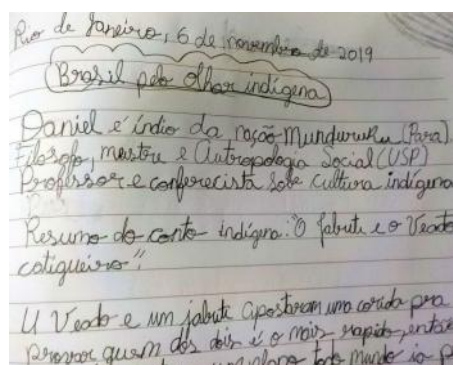 Rio de Janeiro, 6 de novembro de 2019
Brasil pelo olhar indígena
Daniel é índio da nação Munduruku (Pará)
Filosofo, mestre e Autropologia Social (USP)
Professor e conferecista sobe cultura indígena
Resumo do conto indígena: "O Jabuti e o Veado
catigueiro"
U Veado e um jabuti apostaram uma corida pra
provar quem dos dois é o mais rapido, então
plano todo mundo ia p